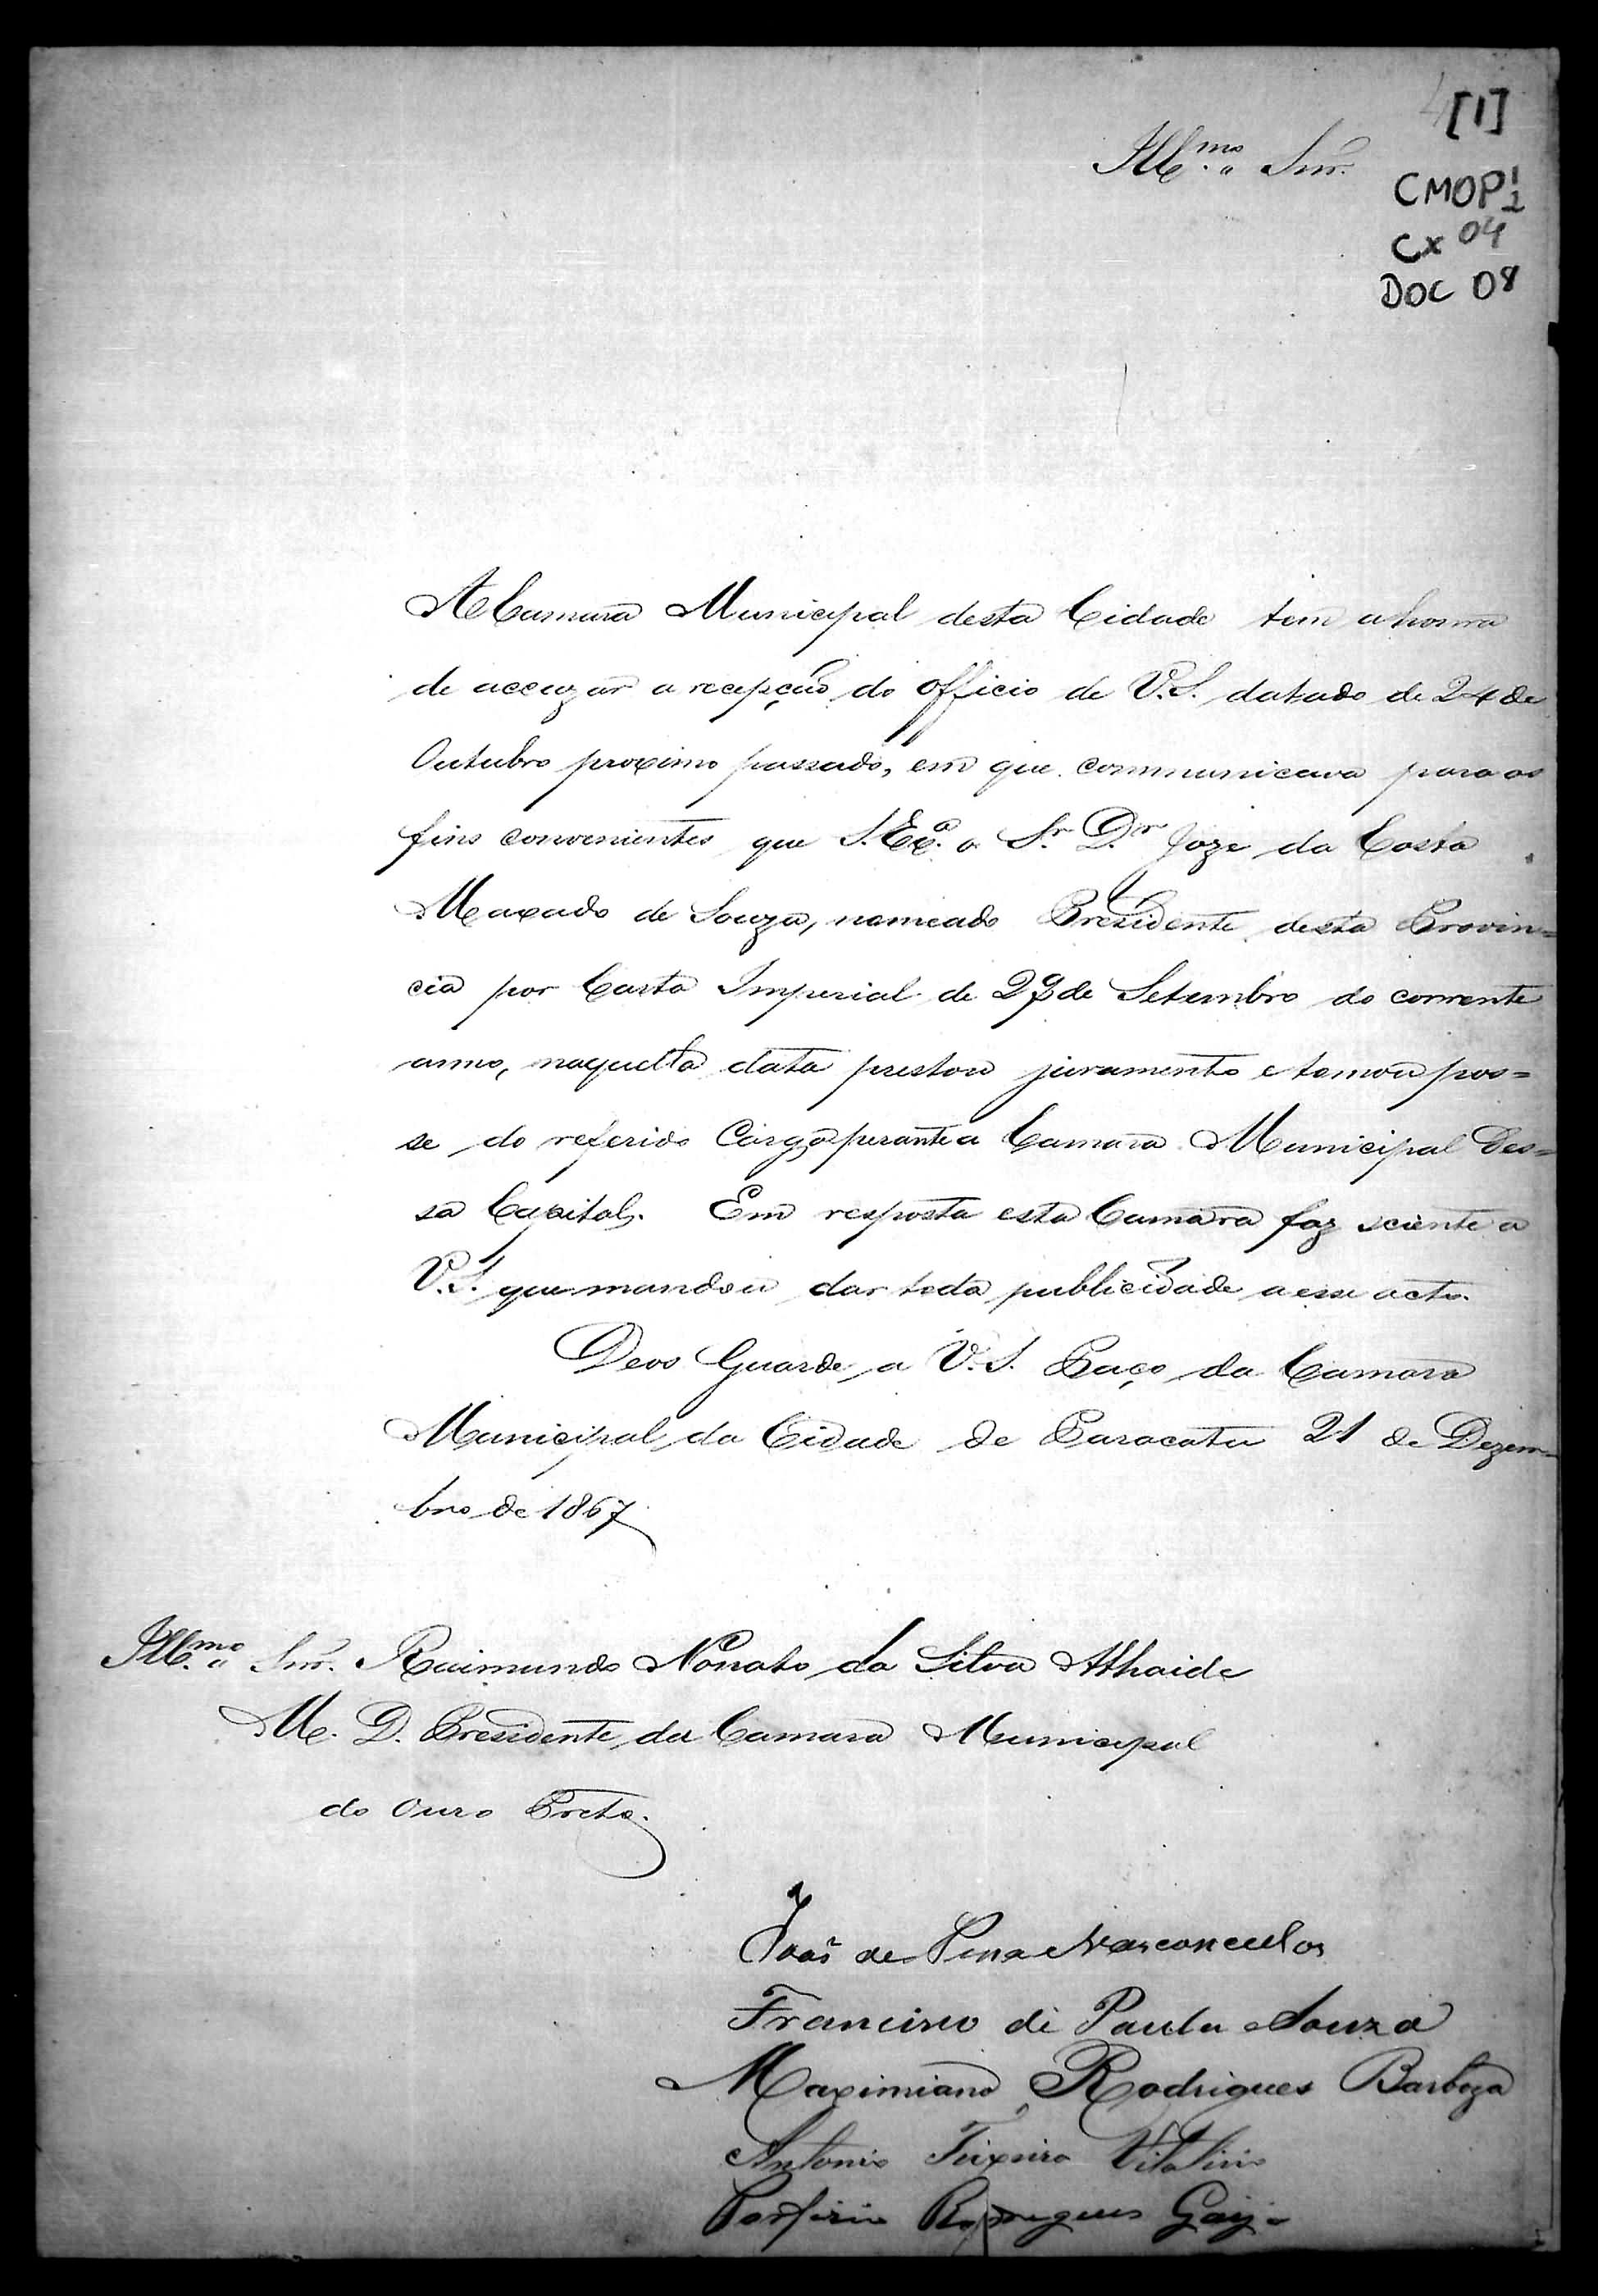 [1]
Ill.mo Snr.
CMOP 1/2
Cx 04
DOC 08
A Camara Municipal desta Cidade tem a honra
de accuzar a recepção do officio de V.S. datado de 24 de
Outubro proximo passado, em que communicava para os
fins convenientes que S. Exª. o Sr. Dr. Joze da Costa
Maxado de Souza, nomeado Prezidente desta Provin=
cia por Carta Imperial de de Setembro do corrente
anno, naquella data prestou juramento e tomou pos=
se do referido Cargo perante a Camara Municipal des=
sa Capital. Em resposta esta Camara faz sciente a
V.S. que mandou dar toda publicidade a esse acto.
Deos Guarde a V.S. Paço da Camara
Municipal da Cidade de Paracatu 21 de Dezem=
bro de 1867
Ill.mo Snr. Raimundo Nonato da Silva Athaide
M. D. Presidente da Camara Municipal
do Ouro Preto.
João de Pina Vasconcellos
Francisco de Paula Souza
Maximiano Rodrigues Barboza
Antonio Teixeira Vitalino
Porfirio Rodrigues